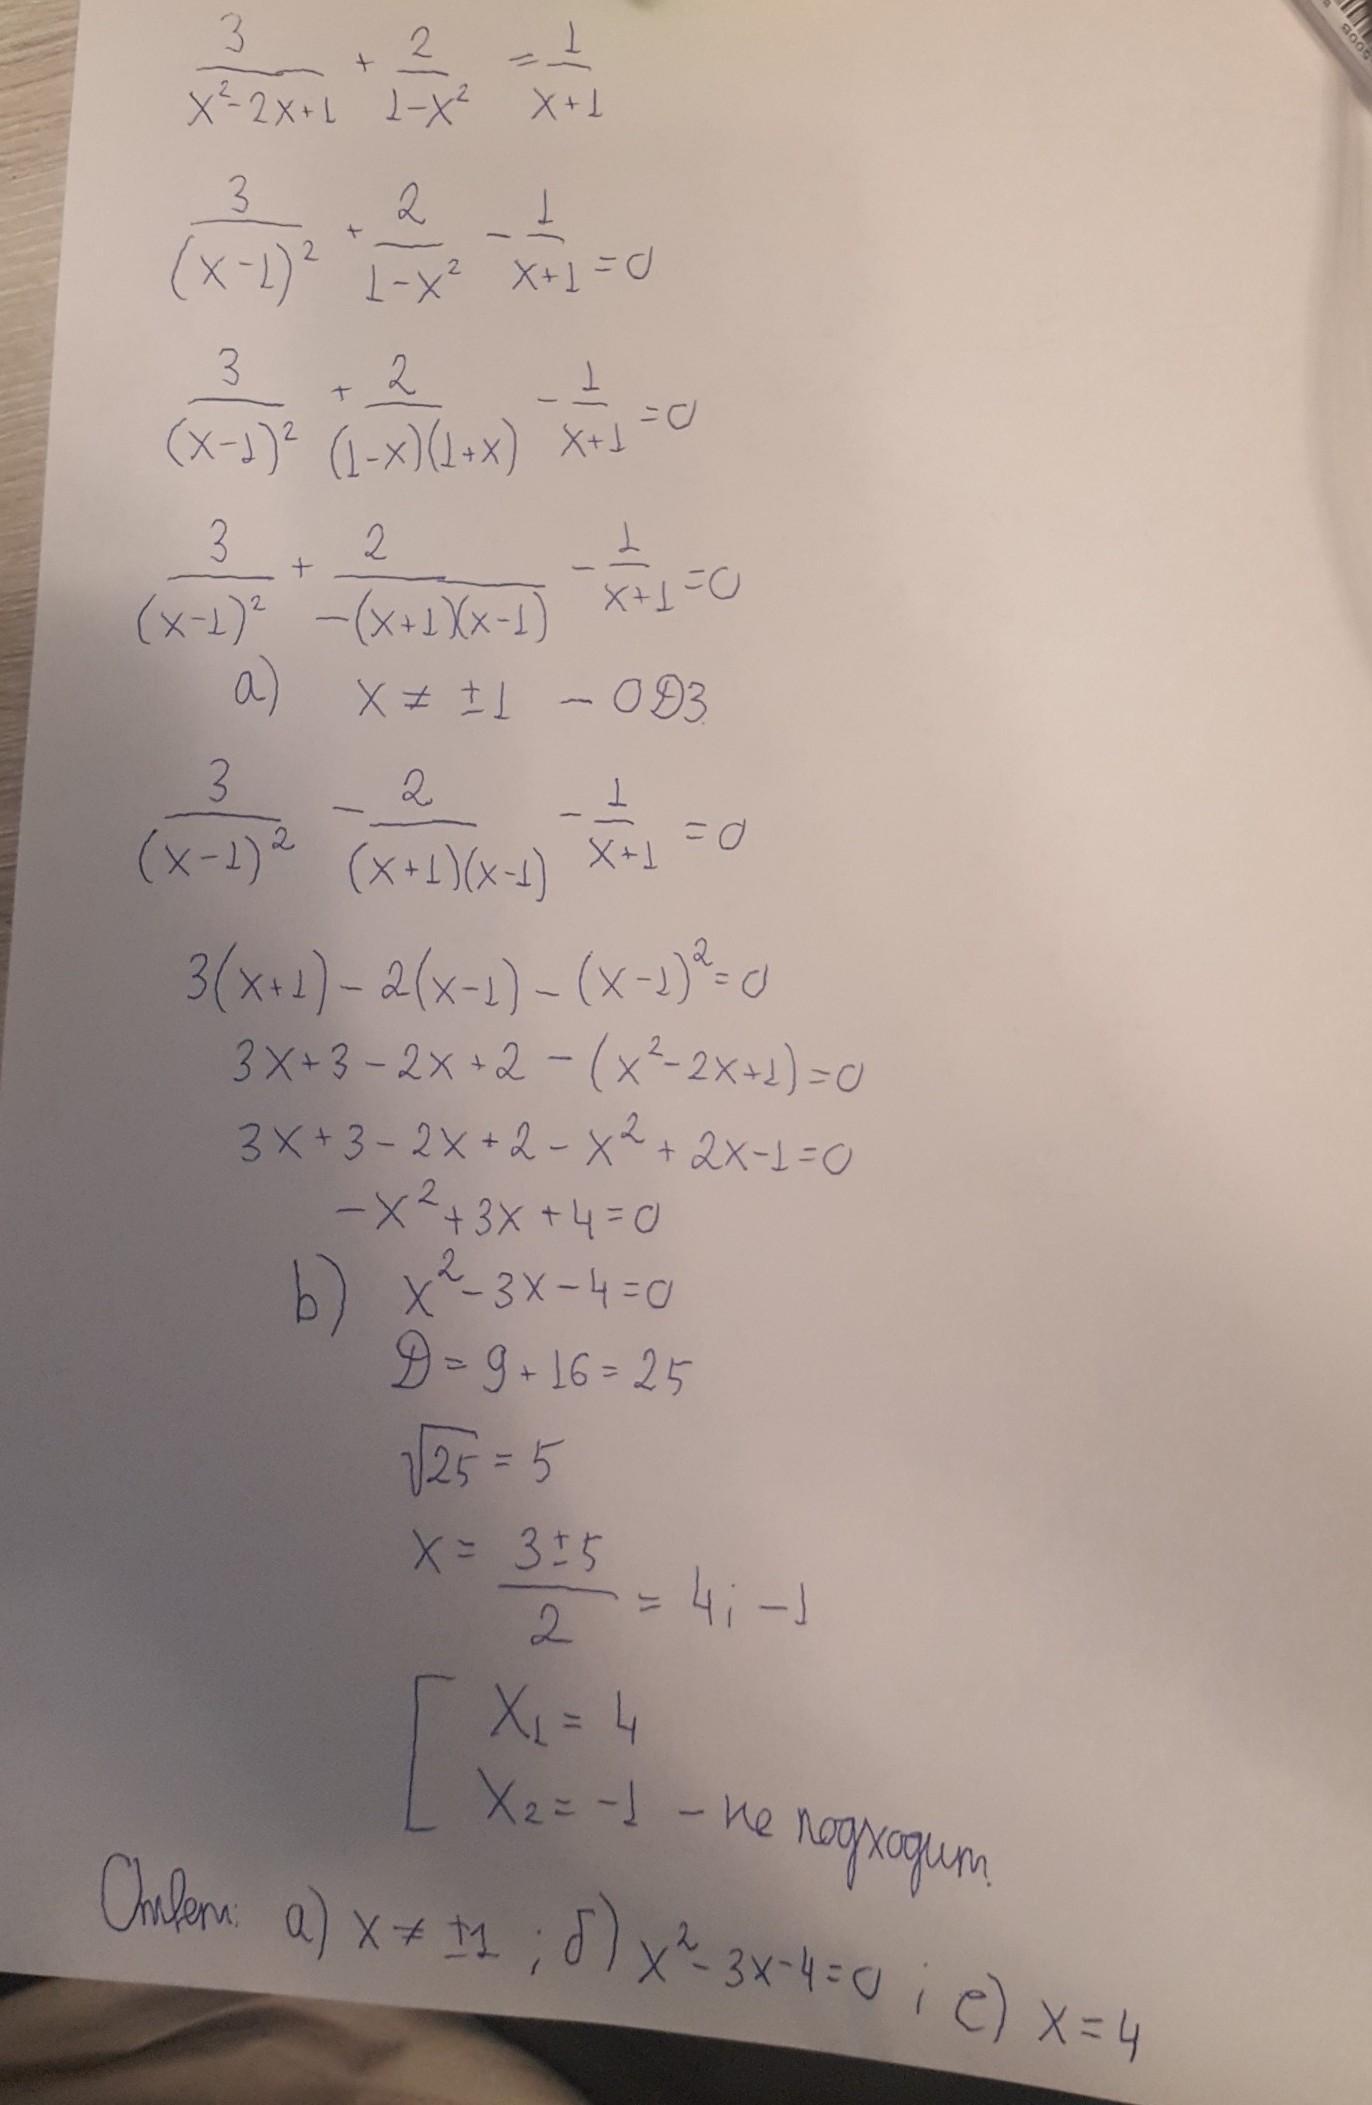 3/(x²-2x+1) + 2/(1-x²) = 1/(x+1)
3/(x-1)² + 2/(1-x²) - 1/(x+1) = 0
3/(x-1)² + 2/((1-x)(1+x)) - 1/(x+1) = 0
3/(x-1)² + 2/(-(x+1)(x-1)) - 1/(x+1) = 0
a) x ≠ ±1 - ОДЗ
3/(x-1)² - 2/((x+1)(x-1)) - 1/(x+1) = 0
3(x+1) - 2(x-1) - (x-1)² = 0
3x+3-2x+2-(x²-2x+1)=0
3x+3-2x+2-x²+2x-1=0
-x²+3x+4=0
b) x²-3x-4=0
D=9+16=25
√25=5
x = (3±5)/2 = 4; -1
[ x₁ = 4
x₂ = -1 - не подходит
Ответ: a) x ≠ ±1 ; б) x²-3x-4=0 ; c) x=4